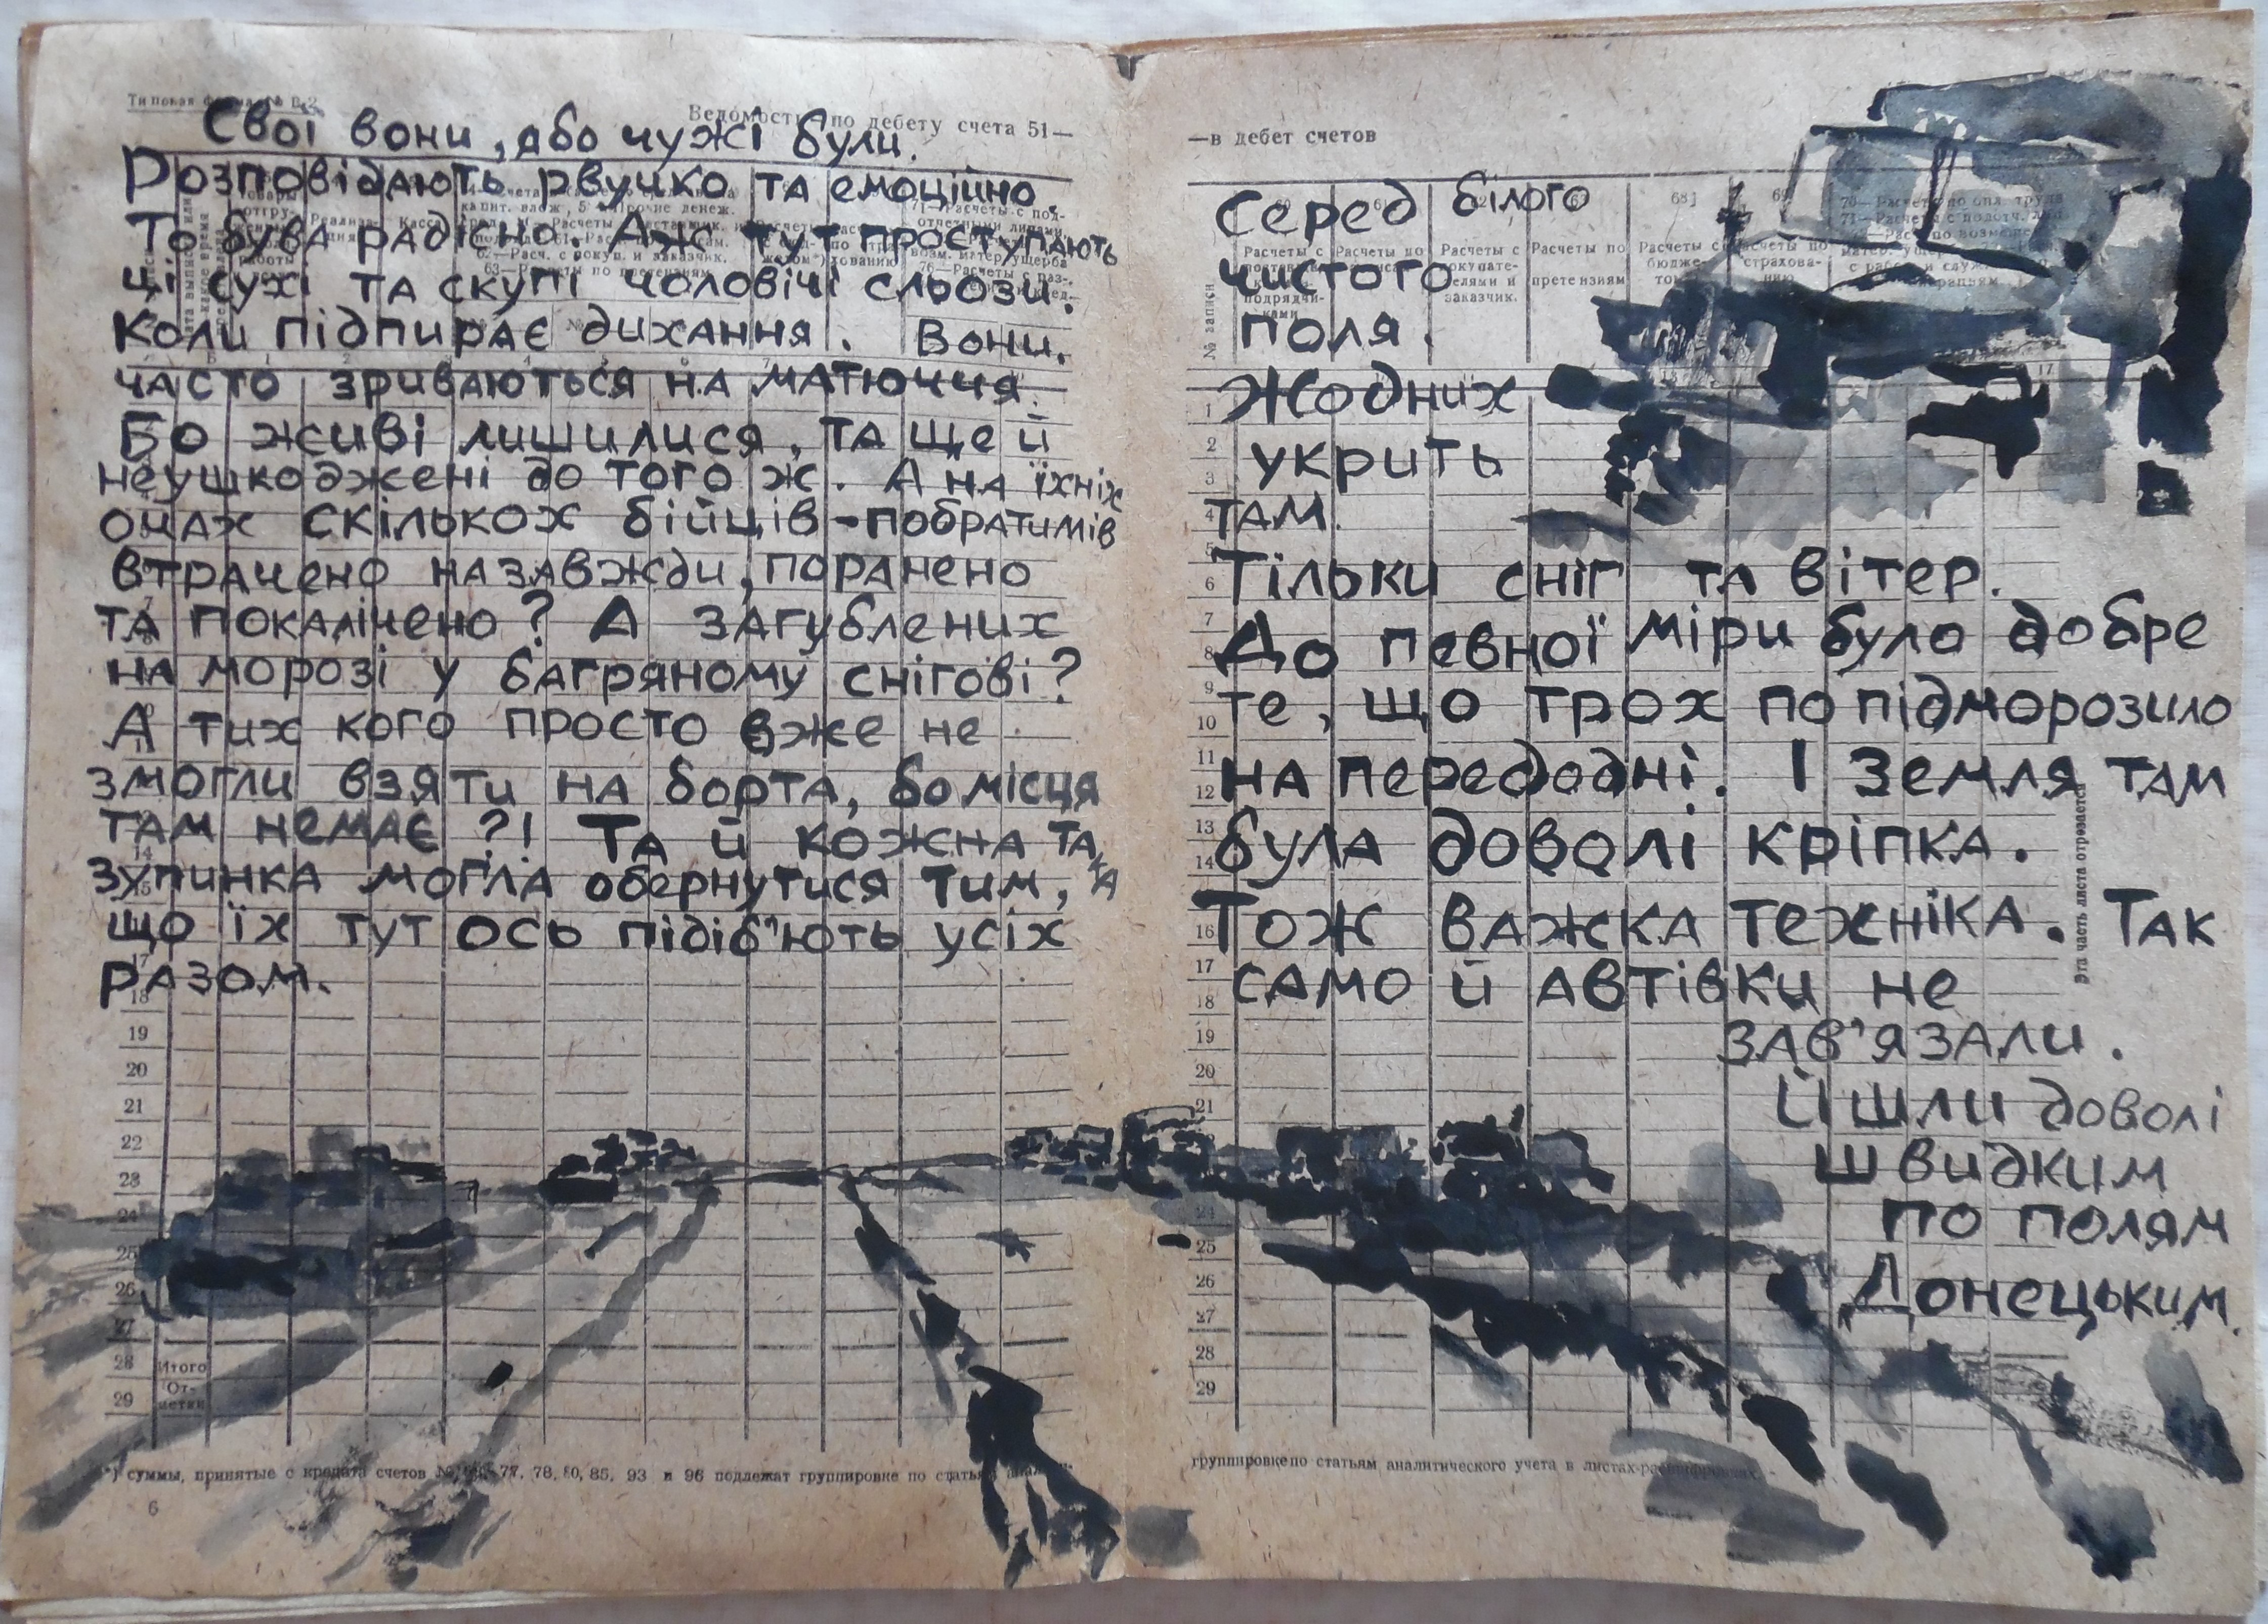 Типовая форма № В-2
Ведомость по дебету счета 51—
Свої вони, або чужі були.
Розповідають рвучко та емоційно.
То бува радісно. Аж тут проступають
ці сухі та скупі чоловічі сльози.
Коли підпирає дихання. Вони,
часто зриваються на матюччя.
Бо живі лишилися, та ще й
неушкоджені до того ж. А на їхніх
очах скількох бійців-побратимів
втрачено назавжди, поранено
та покалічено? А загублених
на морозі у багряному снігові?
А тих кого просто вже не
змогли взяти на борта, бо місця
там немає?! Та й кожна така
зупинка могла обернутися тим,
що їх тут ось підіб'ють усіх
разом.
18
19
20
21
22
23
24
25
26
27
28 Итого
29 От-
метки
суммы, принятые с кредита счетов 77, 78, 80, 85, 93 и 96 подлежат группировке по статьям
6
—в дебет счетов
Серед білого
чистого
поля.
Жодних
укрить
там.
Тільки сніг та вітер.
До певної міри було добре
те, що трох попідморозило
напередодні. І Земля там
була доволі кріпка.
Тож важка техніка. Так
само й автівки не
зав'язали.
Йшли доволі
швидким
по полям
Донецьким.
68]
Расчеты с
Расчеты по
Расчеты с
покупате-
лями и
заказчик.
Расчеты по
претензиям
Расчеты с
бюдже-
том
Расчеты по
страхова-
нию
№ записи
17
1
2
3
4
5
6
7
8
9
10
11
12
13
14
16
17
18
19
20
21
24
25
26
27
28
29
Эта часть листа отрезается
группировке по статьям аналитического учета в листах-расшифровках.